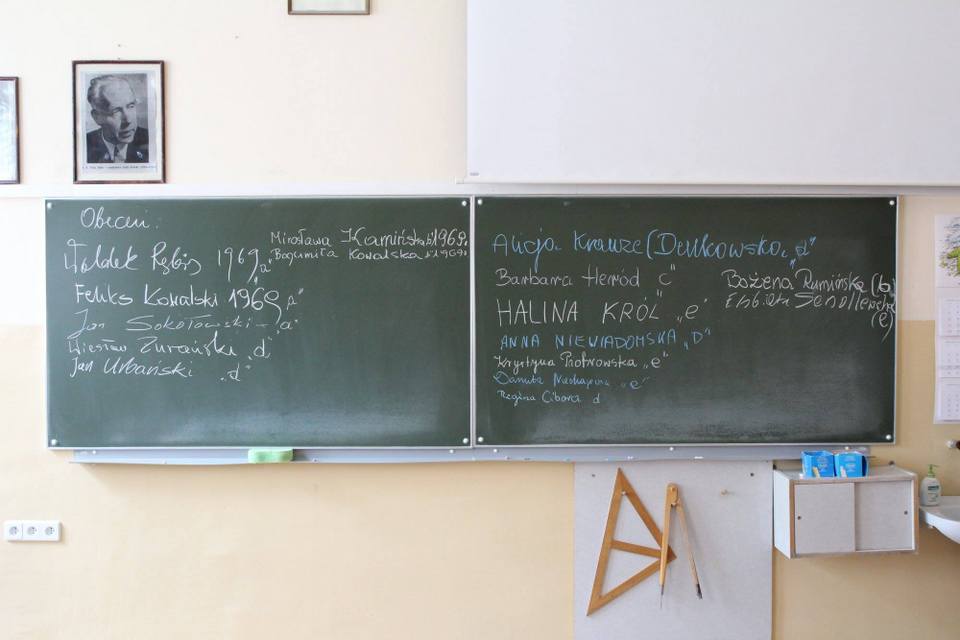 Obecni:
Waldek Rębiś 1969 „a"
Feliks Kowalski 1969 „a"
Jan Sokołowski - „a"
Wiesław Żurański „d"
Jan Urbański „d"
Mirosława Kamińska 1969r.
Bogumiła Kowalska 1969r.
Alicja Krauze (Deukowska „d"
Barbara Heród c"
HALINA KRÓL „e"
ANNA NIEWIADOMSKA „D"
Krystyna Piotrowska „e"
Danuta „e"
Regina Cibora d
Bożena Rumińska (b)
Elżbieta
(e)